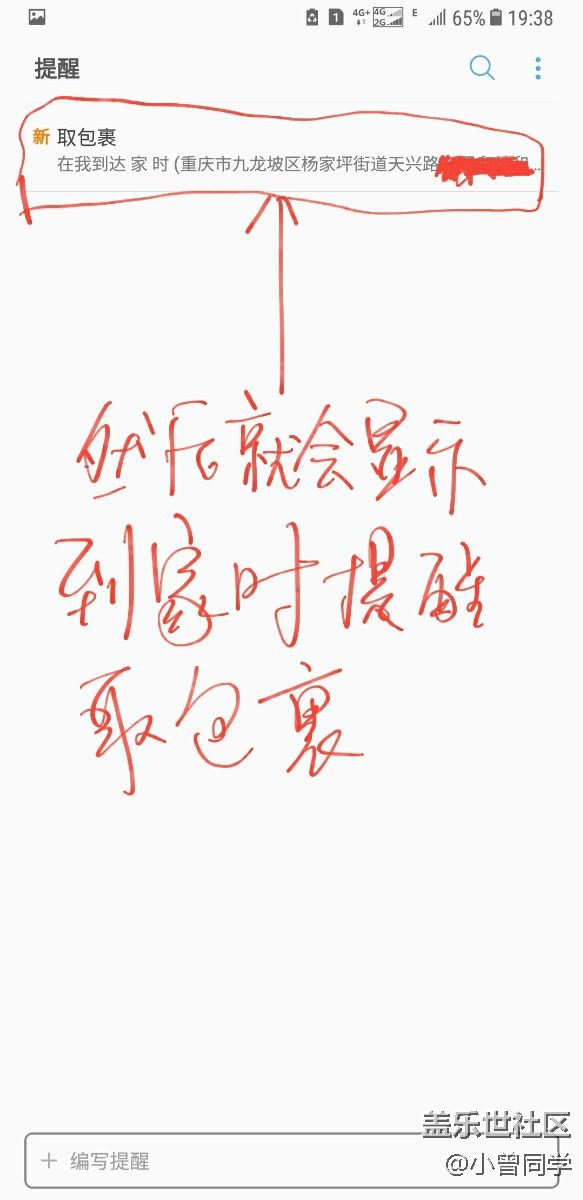 4G+ 4G 2G E 65% 19:38
提醒
新 取包裹
在我到达 家 时 (重庆市九龙坡区杨家坪街道天兴路
然后就会显示
到家时提醒
取包裹
盖乐世社区
+ 编写提醒
@小曾同学